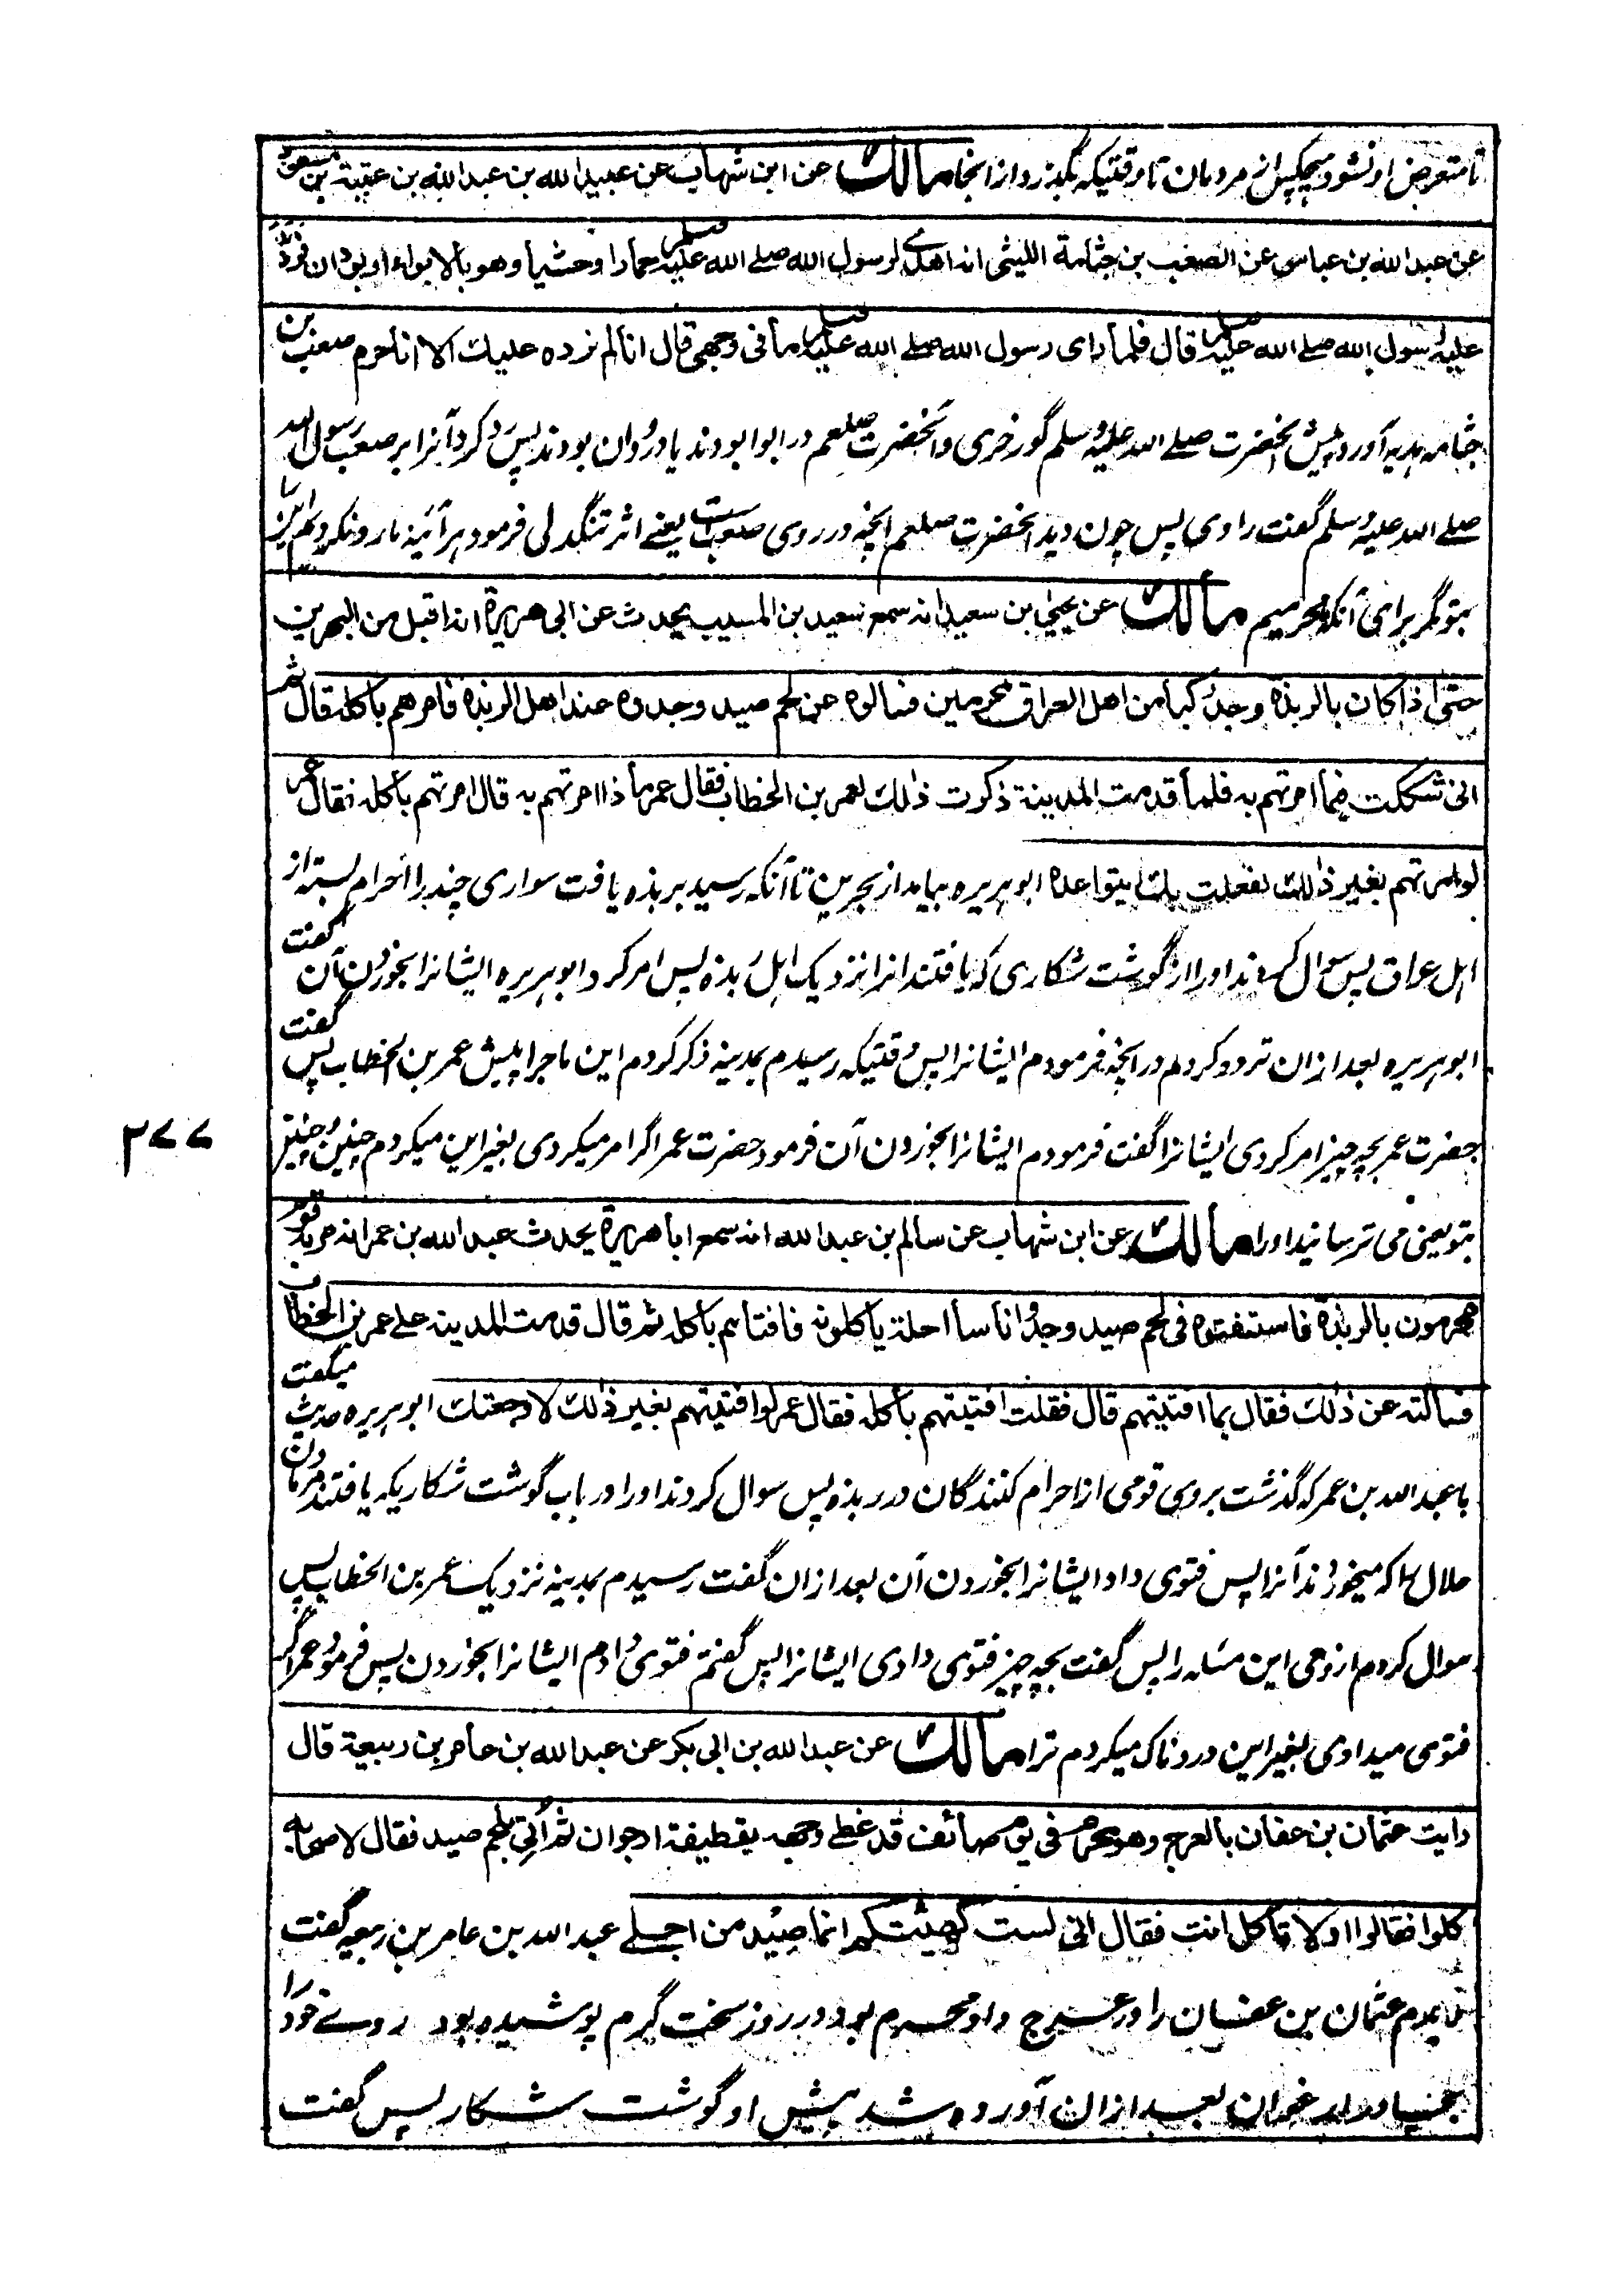 تا متعرض او نشود هیچکس از مردمان تا وقتیکه بگذرد از انجا مالك عن ابن شهاب عن عبيد الله بن عبد الله بن عتبة بن مسعود
عن عبد الله بن عباس عن الصعب بن جثامة الليثى انه اهدى لرسول الله صلے الله عليه وسلم حمارا وحشيا وهو بالابواء او بودان فرده
عليه رسول الله صلے الله عليه وسلم قال فلما راى رسول الله صلے الله عليه وسلم ما فى وجهى قال انا لم نرده عليك الا انا حرم صعب بن
جثامه هدیه آورد پیش آنحضرت صلے الله علیه وسلم گورخری و آنحضرت صلعم در ابوا بودند یا در ودان بودند پس رد کرد آنرا بر صعب رسول الله
صلے الله علیه وسلم گفت راوی پس چون دید آنحضرت صلعم آنچه در روی صعب است یعنے اثر تنگدلی فرمود هر آئینه ما رد نکردیم این را
بتو مگر برای آنکه محرمیم مالك عن يحيى بن سعيد انه سمع سعيد بن المسيب يحدث عن ابى هريرة انه اقبل من البحرين
حتى اذا كان بالربذة وجد ركبا من اهل العراق محرمين فسالوه عن لحم صيد وجدوه عند اهل الربذة فامرهم باكله قال ثم
انى شككت فيما امرتهم به فلما قدمت المدينة ذكرت ذلك لعمر بن الخطاب فقال عمر ماذا امرتهم به قال امرتهم باكله فقال عمر
لو امرتهم بغير ذلك لفعلت بك يتواعده ابو هریره بیامد از بحرین تا آنکه رسید بربذه یافت سواری چند را احرام بسته از
اهل عراق پس سوال کردند او را از گوشت شکاری که یافتند انرا نزدیک اهل ربذه پس امر کرد ابو هریره ایشانرا بخوردن آن گفت
ابو هریره بعد ازان تردد کردم در آنچه فرمودم ایشانرا پس وقتیکه رسیدم بمدینه ذکر کردم این ماجرا پیش عمر بن الخطاب پس گفت
حضرت عمر بچه چیز امر کردی ایشانرا گفت فرمودم ایشانرا بخوردن آن فرمود حضرت عمر اگر امر میکردی بغیر این میکردم چنین و چنین
بتو یعنی می ترسانید او را مالك عن ابن شهاب عن سالم بن عبد الله انه سمع ابا هريرة يحدث عبد الله بن عمر انه مر به قوم
محرمون بالربذة فاستفتوه فى لحم صيد وجدوا ناسا احلة ياكلونه فافتاهم باكله ثم قال قدمت المدينة على عمر بن الخطاب
فسالته عن ذلك فقال بما افتيتهم قال فقلت افتيتهم باكله فقال عمر لو افتيتهم بغير ذلك لاوجعتك ابو هریره حدیث میگفت
با عبد الله بن عمر که گذشت بروی قومی از احرام کنندگان در ربذه پس سوال کردند او را در باب گوشت شکاریکه یافتند مردمان
حلال را که میخورند آنرا پس فتوی داد ایشانرا بخوردن آن بعد ازان گفت رسیدم بمدینه نزدیک عمر بن الخطاب پس
سوال کردم از وی این مسئله را پس گفت بچه چیز فتوی دادی ایشانرا پس گفتم فتوی دادم ایشانرا بخوردن پس فرمود عمر اگر
فتوی میدادی بغیر این دردناک میکردم ترا مالك عن عبد الله بن ابى بكر عن عبد الله بن عامر بن ربيعة قال
رايت عثمان بن عفان بالعرج وهو محرم فى يوم صائف قد غطى وجهه بقطيفة ارجوان ثم اتى بلحم صيد فقال لاصحابه
كلوا فقالوا اولا تاكل انت فقال انى لست كهيئتكم انما صيد من اجلے عبد الله بن عامر بن ربیعه گفت
دیدم عثمان بن عفان را در عرج و او محرم بود در روز سخت گرم پوشیده بود روے خود را
بچادر ارغوان بعد ازان آورده شد پیش او گوشت شکار پس گفت
٣٧٧